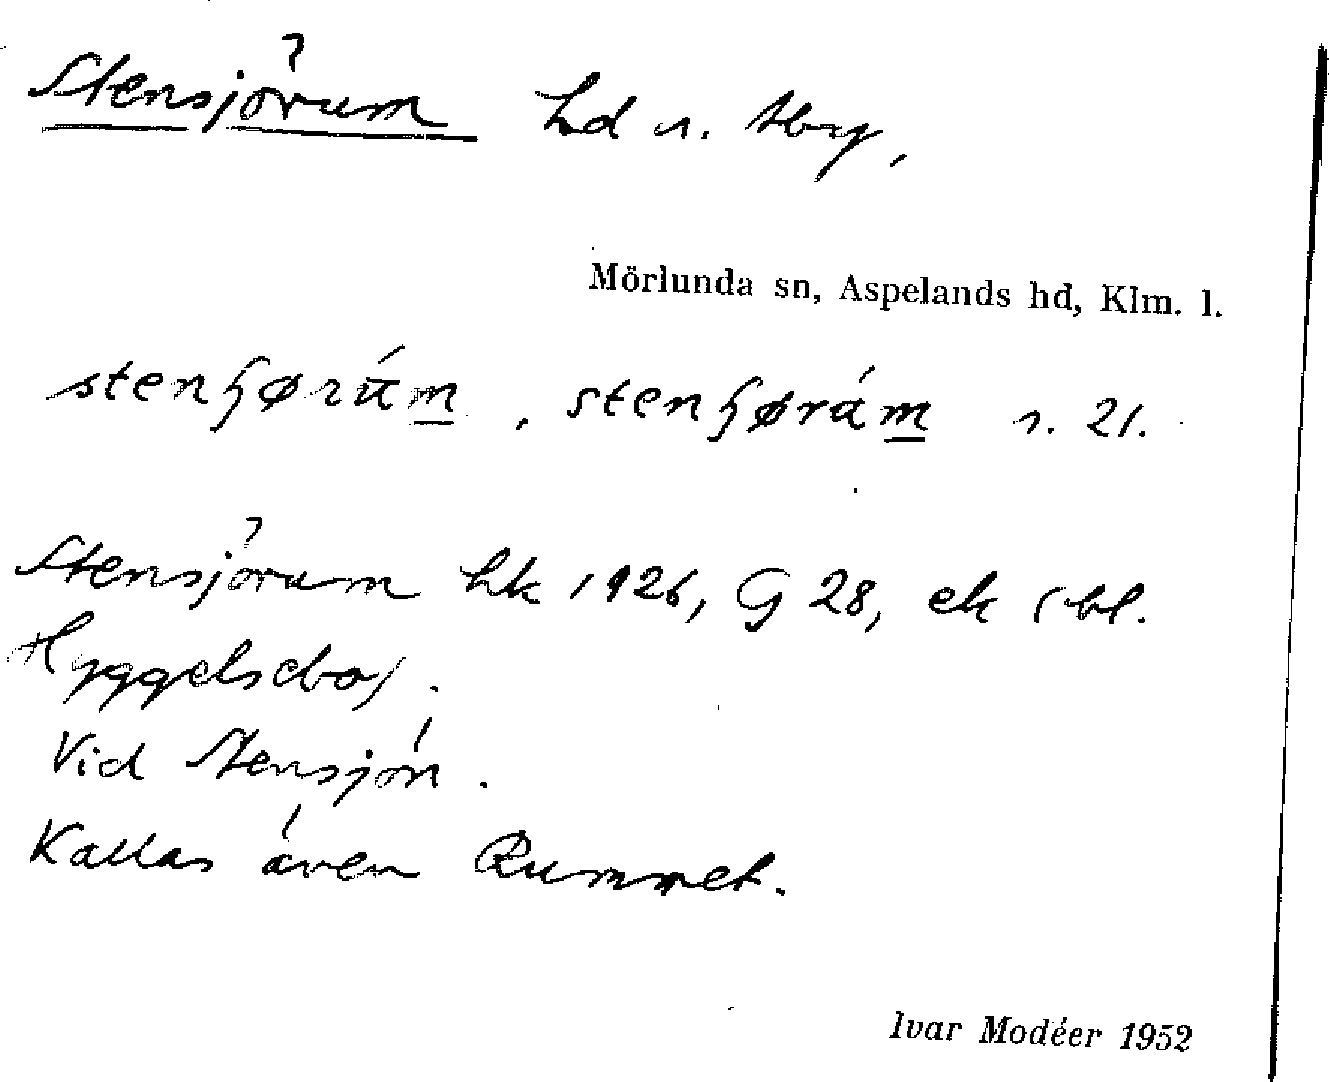 Stensjörum hd n. Hby,
Mörlunda sn, Aspelands hd, Klm. l.
stenʃørúm, stenʃørám s. 21.
Stensjörum hk 1926, G 28, ek (bl.
Hyggelsebo).
Vid Stensjön.
Kallas även Rummet.
Ivar Modéer 1952